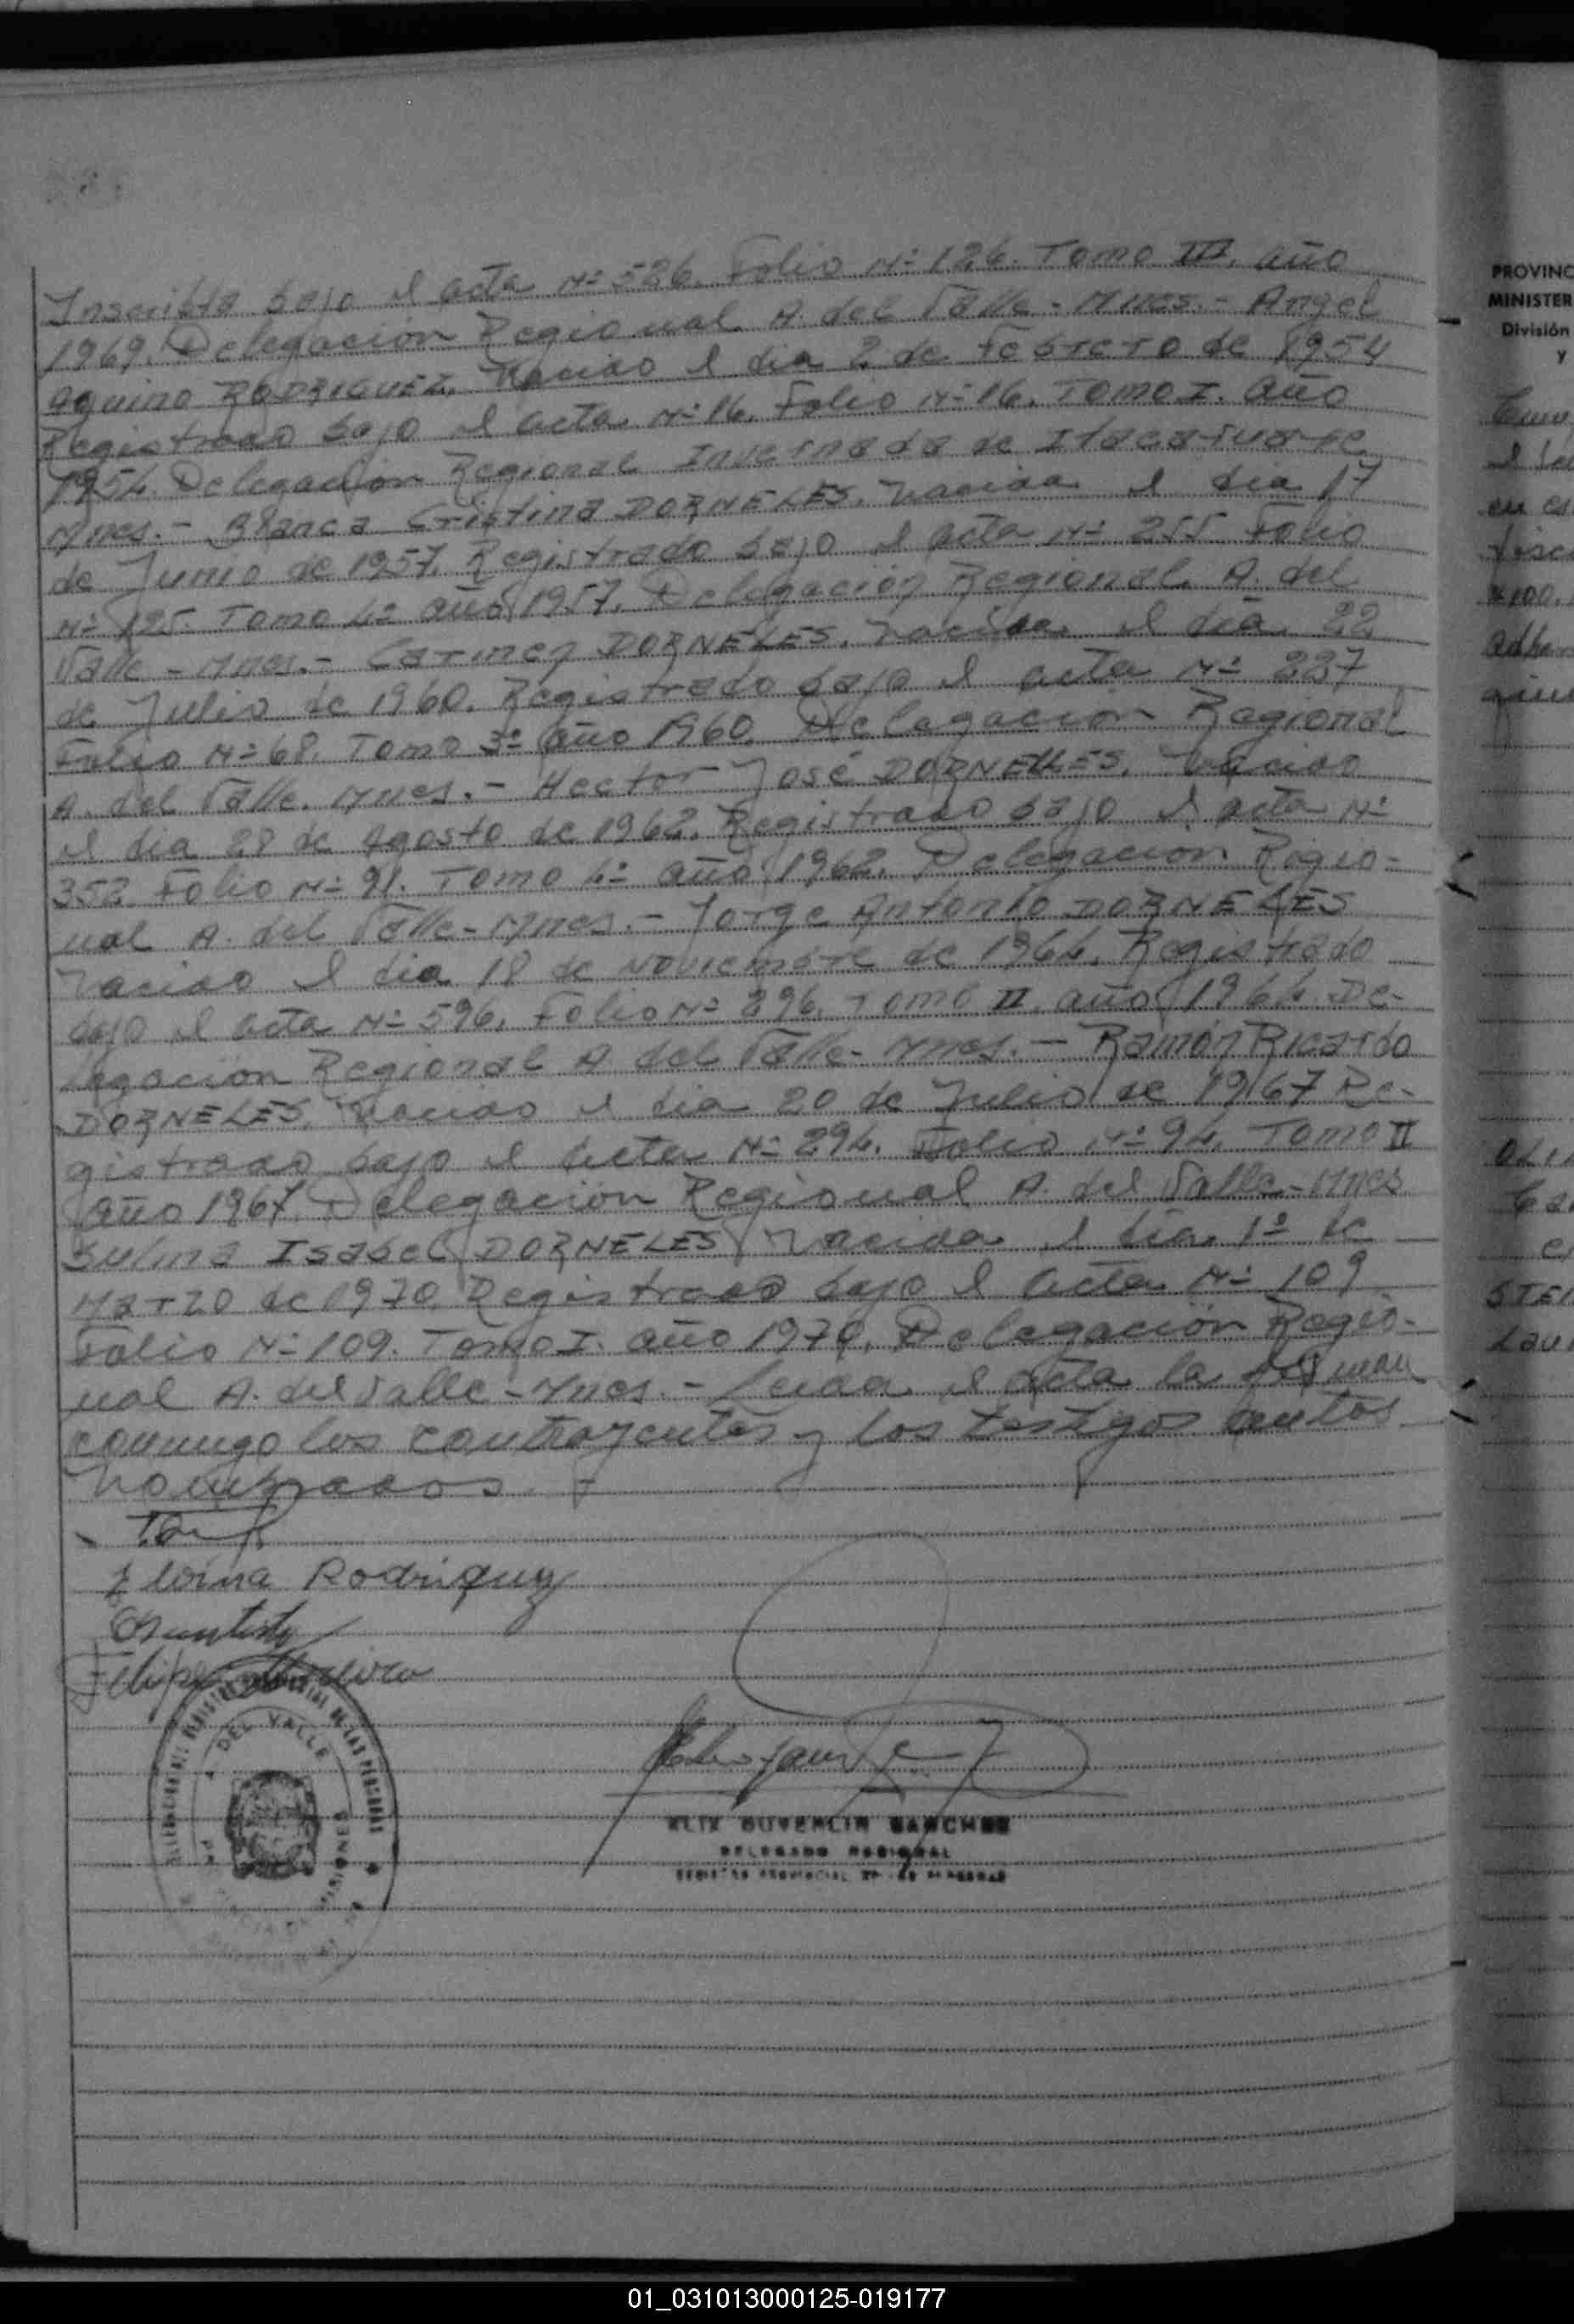 Inscribta bajo el acta Nº 526. Folio Nº 126. Tomo III. año
1969. Delegación Regional A. del Valle - Mnes. - Angel
Aquino RODRIGUEZ, Nacido el dia 2 de Febrero de 1954
Registrado bajo el acta Nº 16. Folio Nº 16. Tomo I. año
1954. Delegación Regional Invernada de Itacaruare
Mnes. - Blanca Cristina DORNELES. Nacida el dia 17
de Junio de 1957. Registrado bajo el acta Nº 255 Folio
Nº 125. Tomo 4º año 1957. Delegación Regional A. del
Valle - Mnes. - Carmen DORNELES. Nacida el dia 22
de Julio de 1960. Registrado bajo el acta Nº 227
Folio Nº 68. Tomo 3º año 1960. Delegación Regional
A. del Valle. Mnes. - Hector José DORNELLES. Nacido
el dia 28 de Agosto de 1962. Registrado bajo el acta Nº
352 Folio Nº 91. Tomo 4º año 1962. Delegación Regio-
nal A. del Valle - Mnes. - Jorge Antonio DORNELES
Nacido el dia 18 de Noviembre de 1964. Registrado
bajo el acta Nº 596. Folio Nº 296. Tomo II. año 1964. De-
legación Regional A del Valle - Mnes. - Ramón Ricardo
DORNELES. Nacido el dia 20 de Julio de 1967 Re-
gistrado bajo el acta Nº 294. Folio Nº 94. Tomo II
año 1967. Delegación Regional A. del Valle - Mnes
Sulma Isabel DORNELES Nacida el dia 1º de
Marzo de 1970. Registrado bajo el acta Nº 109
Folio Nº 109. Tomo I. año 1970. Delegación Regio-
nal A. del Valle - Mnes. - Leida el acta la firman
conmigo los contrayentes y los testigos antes
nombrados.
Elvina Rodriguez
Felipe
DEL VALLE
SANCHEZ
DELEGADO REGIONAL
REGISTRO PROVINCIAL DE LAS PERSONAS
PROVINC
MINISTER
División
y
en es
adher
STEI
01_031013000125-019177